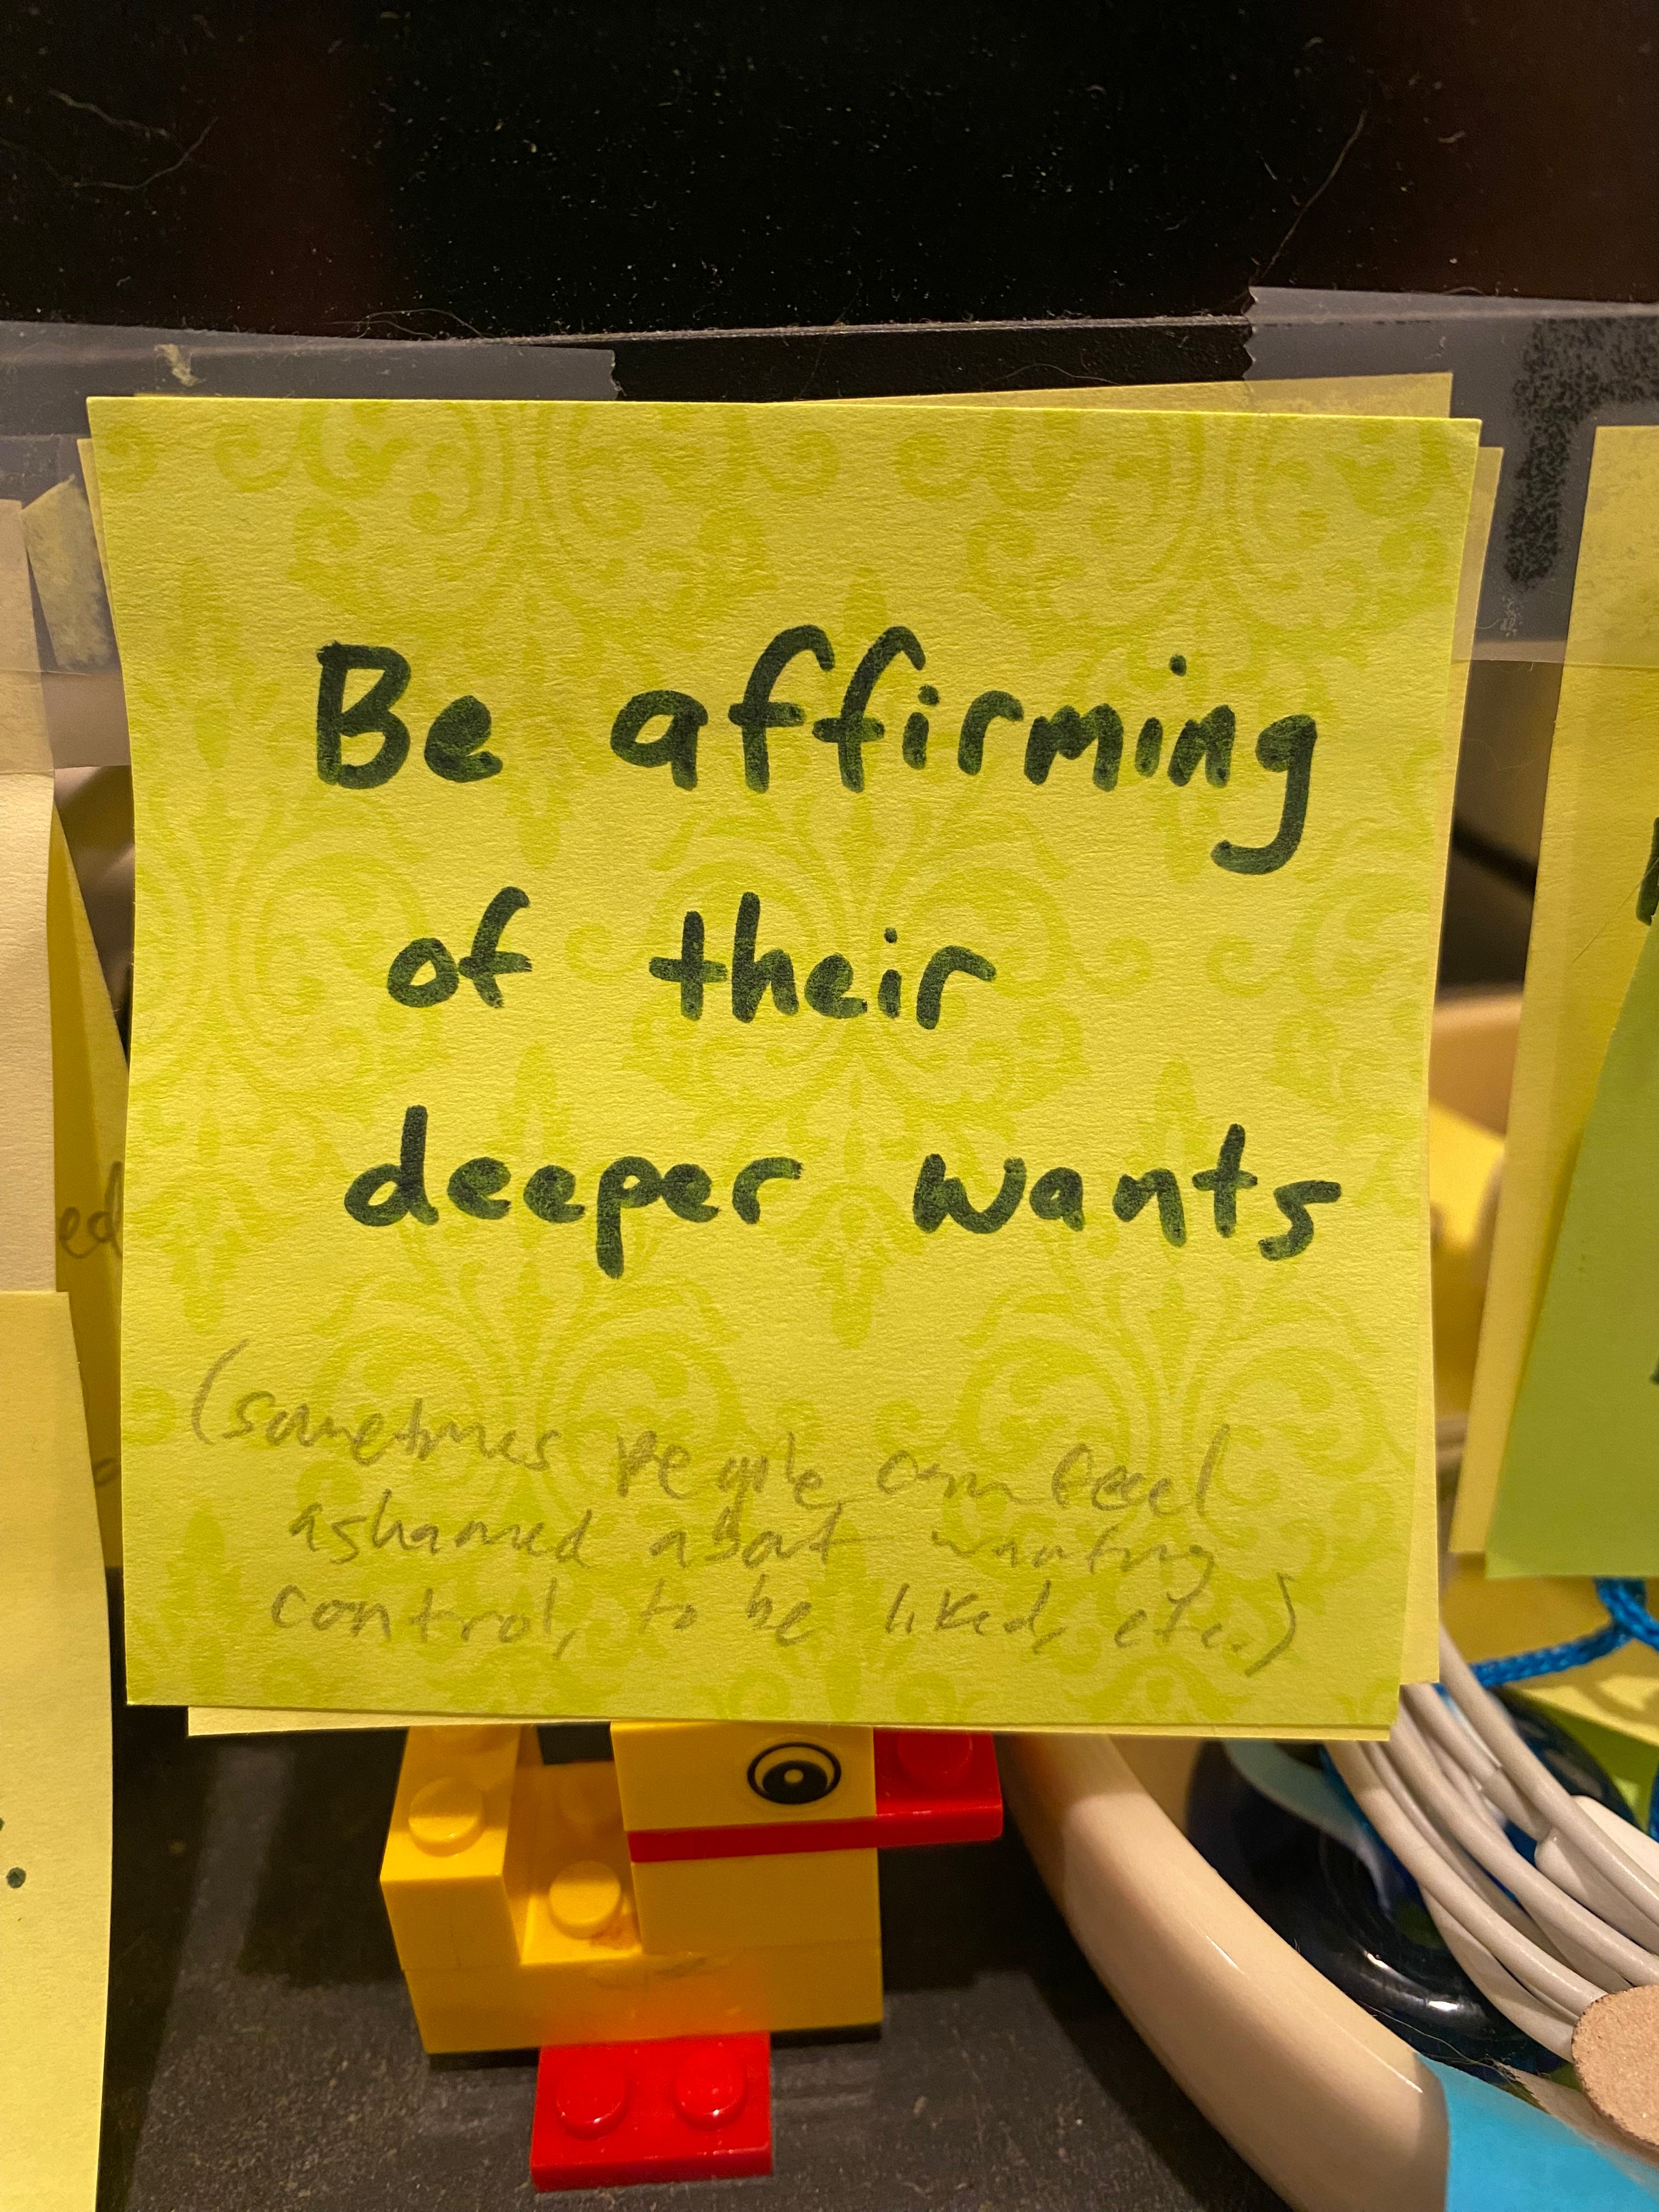 Be affirming
of their
deeper wants
(sometimes people can feel
ashamed about wanting
control, to be liked, etc.)
ed